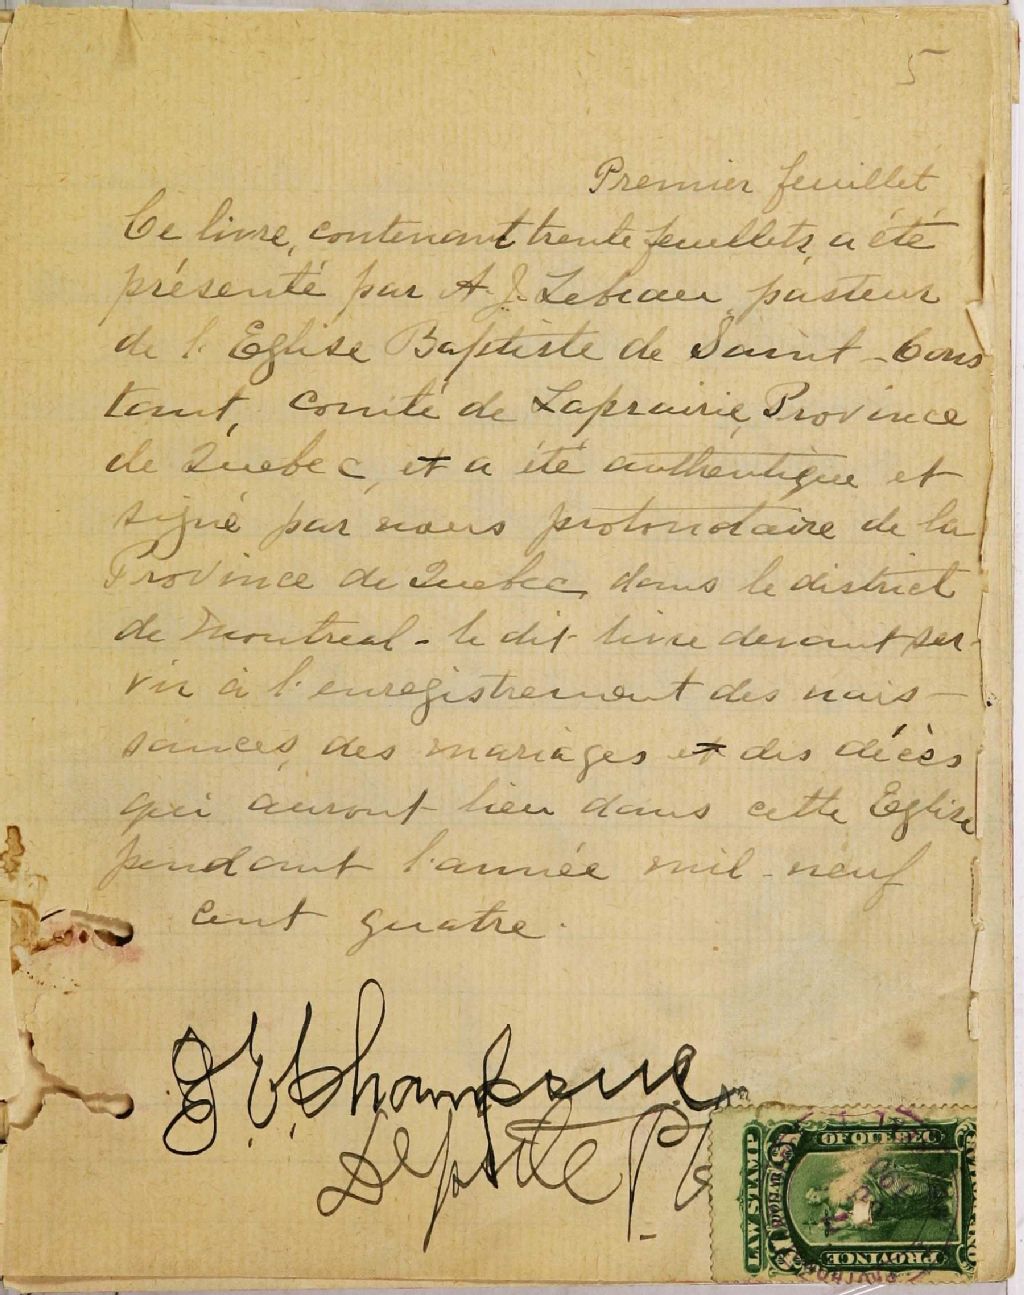 5
Premier feuillet
Ce livre, contenant trente feuillets, a été
présenté par A. J. Lebeau, pasteur
de l'Eglise Baptiste de Saint-Cons
tant, comté de Laprairie, Province
de Quebec, et a été authentique et
signé par nous protonotaire de la
Province de Quebec, dans le district
de Montreal - le dit livre devant ser-
vir à l'enregistrement des nais-
sances, des mariages et des décès
qui auront lieu dans cette Eglise
pendant l'année mil-neuf
cent quatre.
Champagne
Depute P
LAW STAMP
OF QUEBEC
PROVINCE